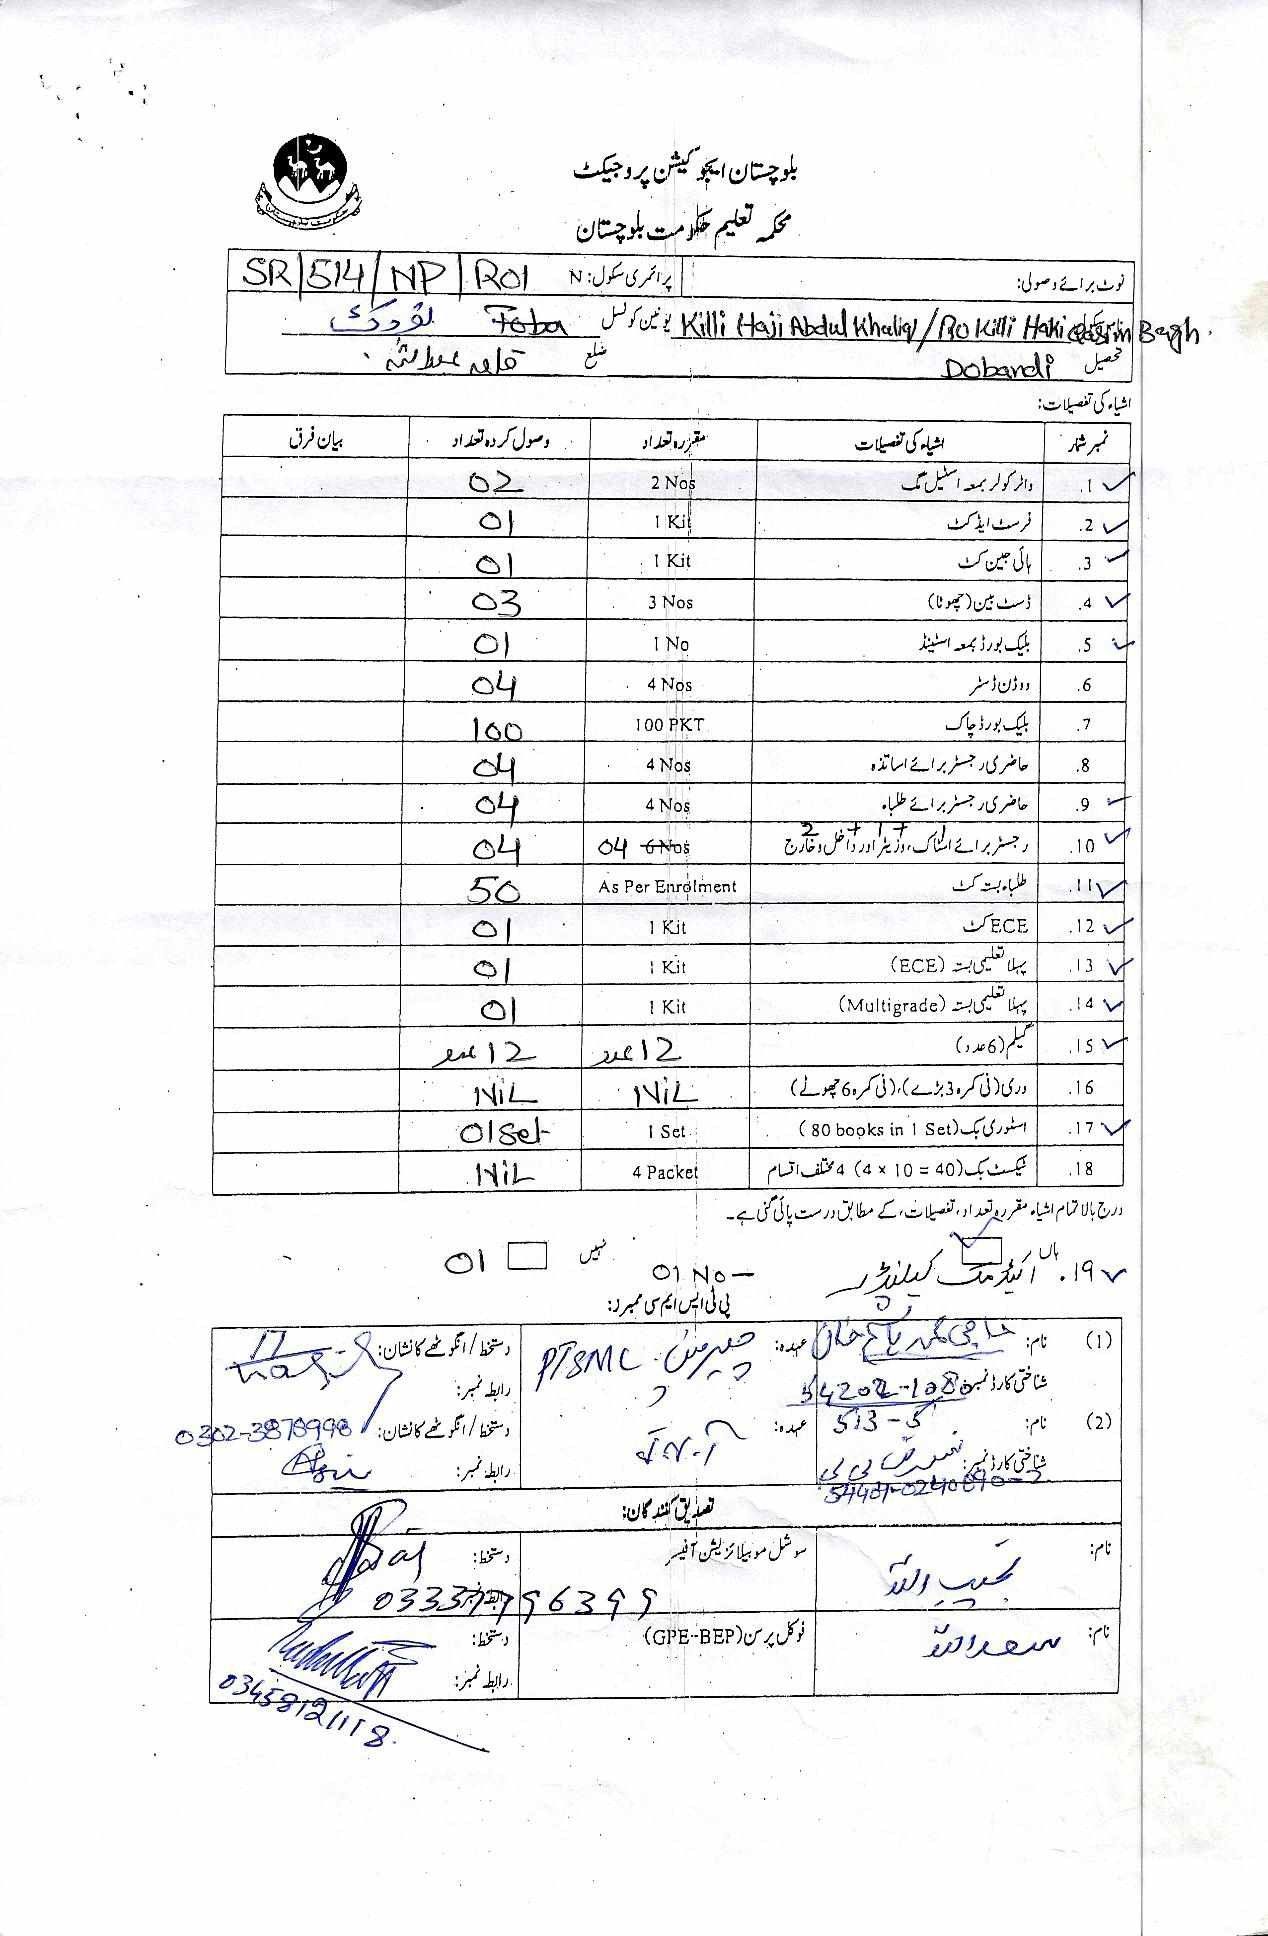 بلوچستان ایجوکیشن پروجیکٹ
محکمہ تعلیم حکومت بلوچستان
نوٹ برائے وصولی: پرائمری سکول: N SR/514/NP/R01
Killi Haji Abdul Khaliq/Ro Killi Haki Qasim Bergh. یونین کونسل Toba
تحصیل Dobandi ضلع قلعہ عبداللہ
اشیاء کی تفصیلات:
نمبر شمار اشیاء کی تفصیلات مقررہ تعداد وصول کردہ تعداد بیان فرق
.1 واٹر کولر بمعہ اسٹیل مگ 2 Nos 02
.2 فرسٹ ایڈ کٹ 1 Kit 01
.3 ہائی جین کٹ 1 Kit 01
.4 ڈسٹ بین (چھوٹا) 3 Nos 03
.5 بلیک بورڈ بمعہ اسٹینڈ 1 No 01
.6 ووڈن ڈسٹر 4 Nos 04
.7 بلیک بورڈ چاک 100 PKT 100
.8 حاضری رجسٹر برائے اساتذہ 4 Nos 04
.9 حاضری رجسٹر برائے طلباء 4 Nos 04
2 + 1 + 1
.10 رجسٹر برائے اسٹاک، وزیٹر اور داخل و خارج 6 Nos 04 04
.11 طلباء بستہ کٹ As Per Enrolment 50
.12 ECE کٹ 1 Kit 01
.13 پہلا تعلیمی بستہ (ECE) 1 Kit 01
.14 پہلا تعلیمی بستہ (Multigrade) 1 Kit 01
.15 گلیم (6 عدد) 12 عدد 12 عدد
.16 دری (فی کمرہ 3 بڑے)، (فی کمرہ 6 چھوٹے) NiL NiL
.17 اسٹوری بک (80 books in 1 Set) 1 Set 01 Set
.18 ٹیکسٹ بک (4 × 10 = 40) 4 مختلف اقسام 4 Packet NiL
درج بالا تمام اشیاء مقررہ تعداد، تفصیلات، کے مطابق درست پائی گئی ہے۔
ہاں نہیں
.19 اکیڈمک کیلنڈر 01 No - 01
پی ٹی ایس ایم سی ممبرز:
(1) نام: حاجی محمد خان عہدہ: چیرمین PTSMC دستخط/انگوٹھے کا نشان:
شناختی کارڈ نمبر: 54202-1080 رابطہ نمبر:
513-5
(2) نام: عہدہ: دستخط/انگوٹھے کا نشان: 0302-3878998
شناختی کارڈ نمبر: بی بی رابطہ نمبر:
54401-0240890-2
تصدیق کنندگان:
نام: نجیب اللہ سوشل موبیلائزیشن آفیسر دستخط:
رابطہ نمبر: 03337796399
نام: سعداللہ فوکل پرسن (GPE-BEP) دستخط:
رابطہ نمبر: 03458121118